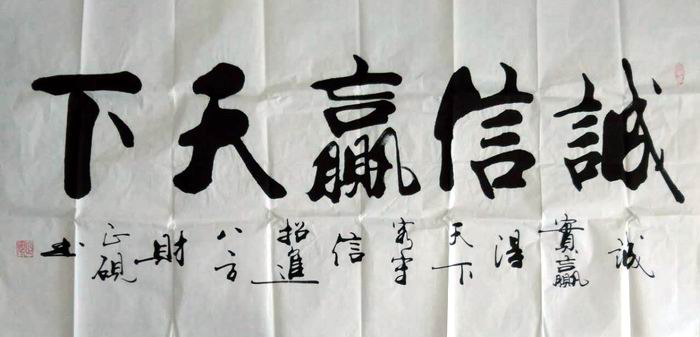 誠信贏天下
誠實贏得天下守信招進八方財 正硯书